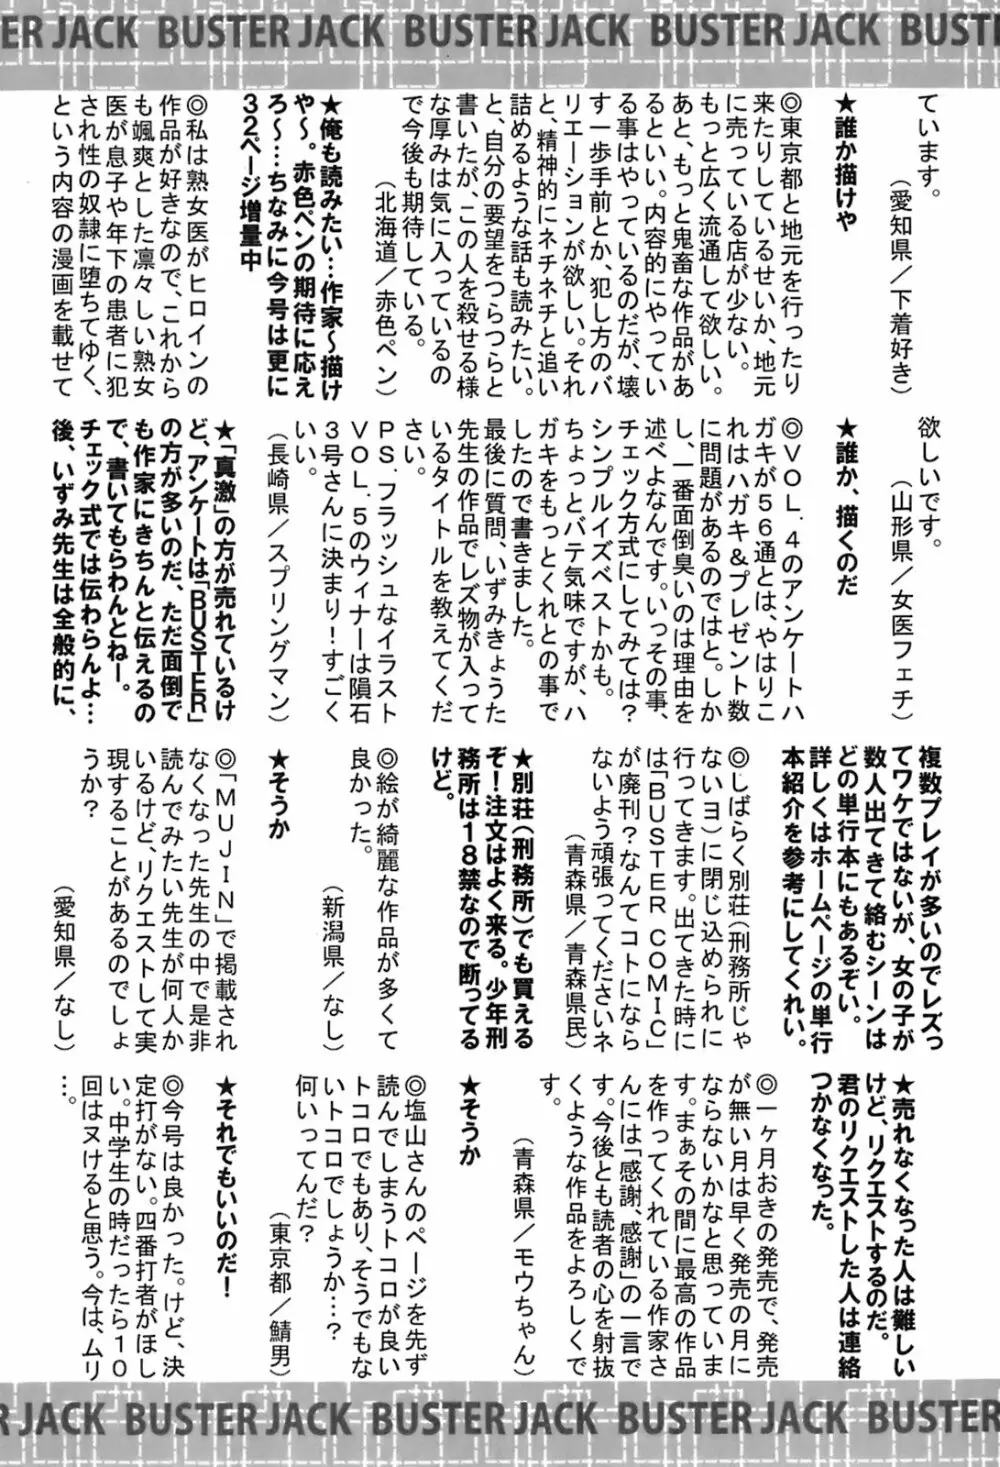 BUSTER JACK BUSTER JACK BUSTER JACK BUSTER JACK BUST
ています。
(愛知県/下着好き)
★誰か描けや
◎東京都と地元を行ったり
来たりしているせいか、地元
に売っている店が少ない。
もっと広く流通して欲しい。
あと、もっと鬼畜な作品があ
るといい。内容的にやってい
る事はやっているのだが、壊
す一歩手前とか、犯し方のバ
リエーションが欲しい。それ
と、精神的にネチネチと追い
詰めるような話も読みたい。
と、自分の要望をつらつらと
書いたが、この人を殺せる様
な厚みは気に入っているの
で今後も期待している。
(北海道/赤色ペン)
★俺も読みたい…作家〜描け
や〜。赤色ペンの期待に応え
ろ〜…ちなみに今号は更に
32ページ増量中
◎私は熟女医がヒロインの
作品が好きなので、これから
も颯爽とした凛々しい熟女
医が息子や年下の患者に犯
され性の奴隷に堕ちてゆく、
という内容の漫画を載せて
欲しいです。
(山形県/女医フェチ)
★誰か、描くのだ
◎VOL.4のアンケートハ
ガキが56通とは、やはりこ
れはハガキ&プレゼント数
に問題があるのではと。しか
し、一番面倒臭いのは理由を
述べよなんです。いっその事、
チェック方式にしてみては?
シンプルイズベストかも。
ちょっとバテ気味ですが、ハ
ガキをもっとくれとの事で
したので書きました。
最後に質問、いずみきょうた
先生の作品でレズ物が入って
いるタイトルを教えてくだ
さい。
PS.フラッシュなイラスト
VOL.5のウィナーは隕石
3号さんに決まり!すごく
いい。
(長崎県/スプリングマン)
★「真激」の方が売れているけ
ど、アンケートは「BUSTER」
の方が多いのだ、ただ面倒で
も作家にきちんと伝えるの
で、書いてもらわんとねー。
チェック式では伝わらんよ…
後、いずみ先生は全般的に、
複数プレイが多いのでレズっ
てワケではないが、女の子が
数人出てきて絡むシーンは
どの単行本にもあるぞい。
詳しくはホームページの単行
本紹介を参考にしてくれい。
◎しばらく別荘(刑務所じゃ
ないヨ)に閉じ込められに
行ってきます。出てきた時に
は「BUSTER COMIC」
が廃刊?なんてコトになら
ないよう頑張ってくださいネ
(青森県/青森県民)
★別荘(刑務所)でも買える
ぞ!注文はよく来る。少年刑
務所は18禁なので断ってる
けど。
◎絵が綺麗な作品が多くて
良かった。
(新潟県/なし)
★そうか
◎「MUJIN」で掲載され
なくなった先生の中で是非
読んでみたい先生が何人か
いるけど、リクエストして実
現することがあるのでしょ
うか?
(愛知県/なし)
★売れなくなった人は難しい
けど、リクエストするのだ。
君のリクエストした人は連絡
つかなくなった。
◎一ヶ月おきの発売で、発売
が無い月は早く発売の月に
ならないかなと思っていま
す。まぁその間に最高の作品
を作ってくれている作家さ
んには「感謝、感謝」の一言で
す。今後とも読者の心を射抜
くような作品をよろしくで
す。
(青森県/モウちゃん)
★そうか
◎塩山さんのページを先ず
読んでしまうトコロが良い
トコロでもあり、そうでもな
いトコロでしょうか…?
何いってんだ?
(東京都/鯖男)
★それでもいいのだ!
◎今号は良かった。けど、決
定打がない。四番打者がほし
い。中学生の時だったら10
回はヌけると思う。今は、ムリ
…。
ER JACK BUSTER JACK BUSTER JACK BUSTER JACK BUSTER